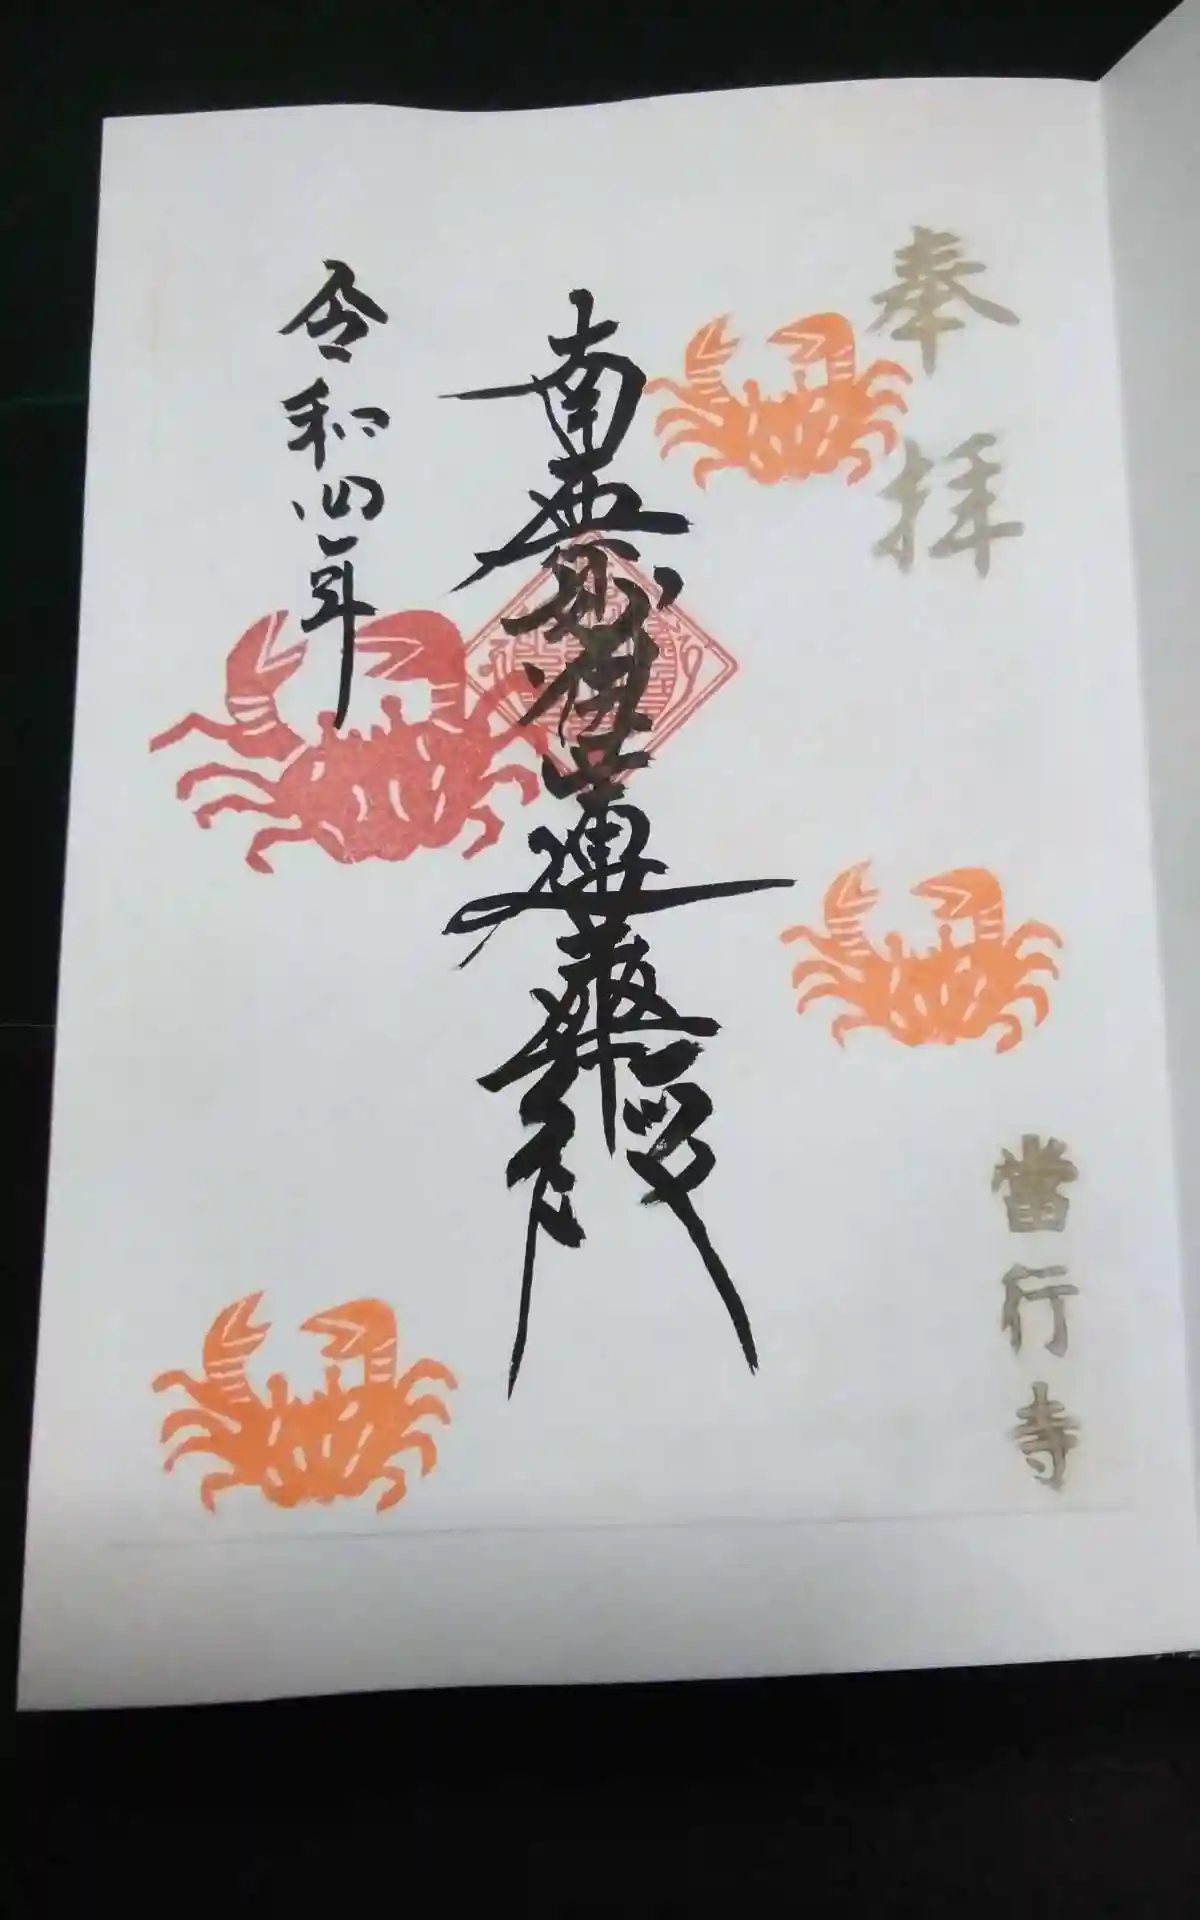 奉拝
當行寺
南無妙法蓮華經
令和四年